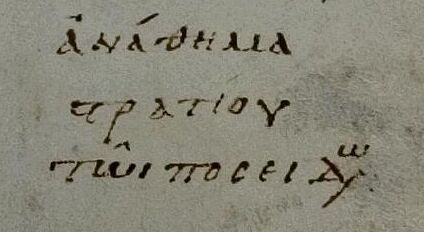 ἀνάθημα
τρατιου
τῶι ποσειδω